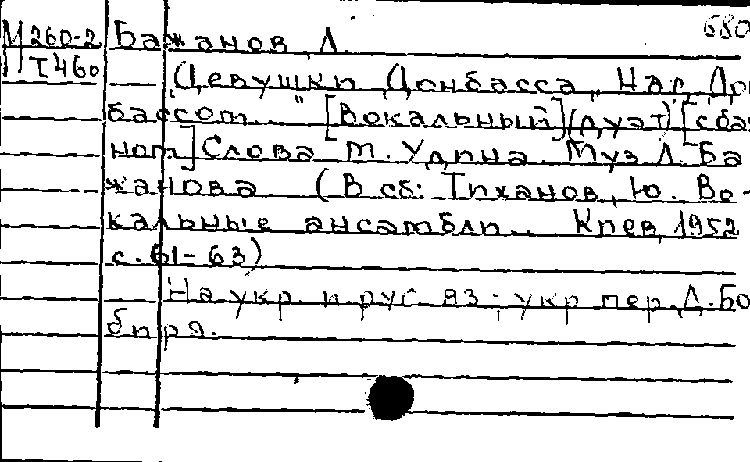 680
М260-2 Бажанов, Л.
Т460 Девушки Донбасса, Нар. Дон
басса т... " [Вокальный] (дуэт) [с ба
ном] Слова Т. Удина. Муз. Л. Ба
жанова (В сб: Тиханов, Ю. Во-
кальные ансамбли.. Киев, 1952
с. 61-63)
На укр. и рус яз.; укр пер. Д. Бо